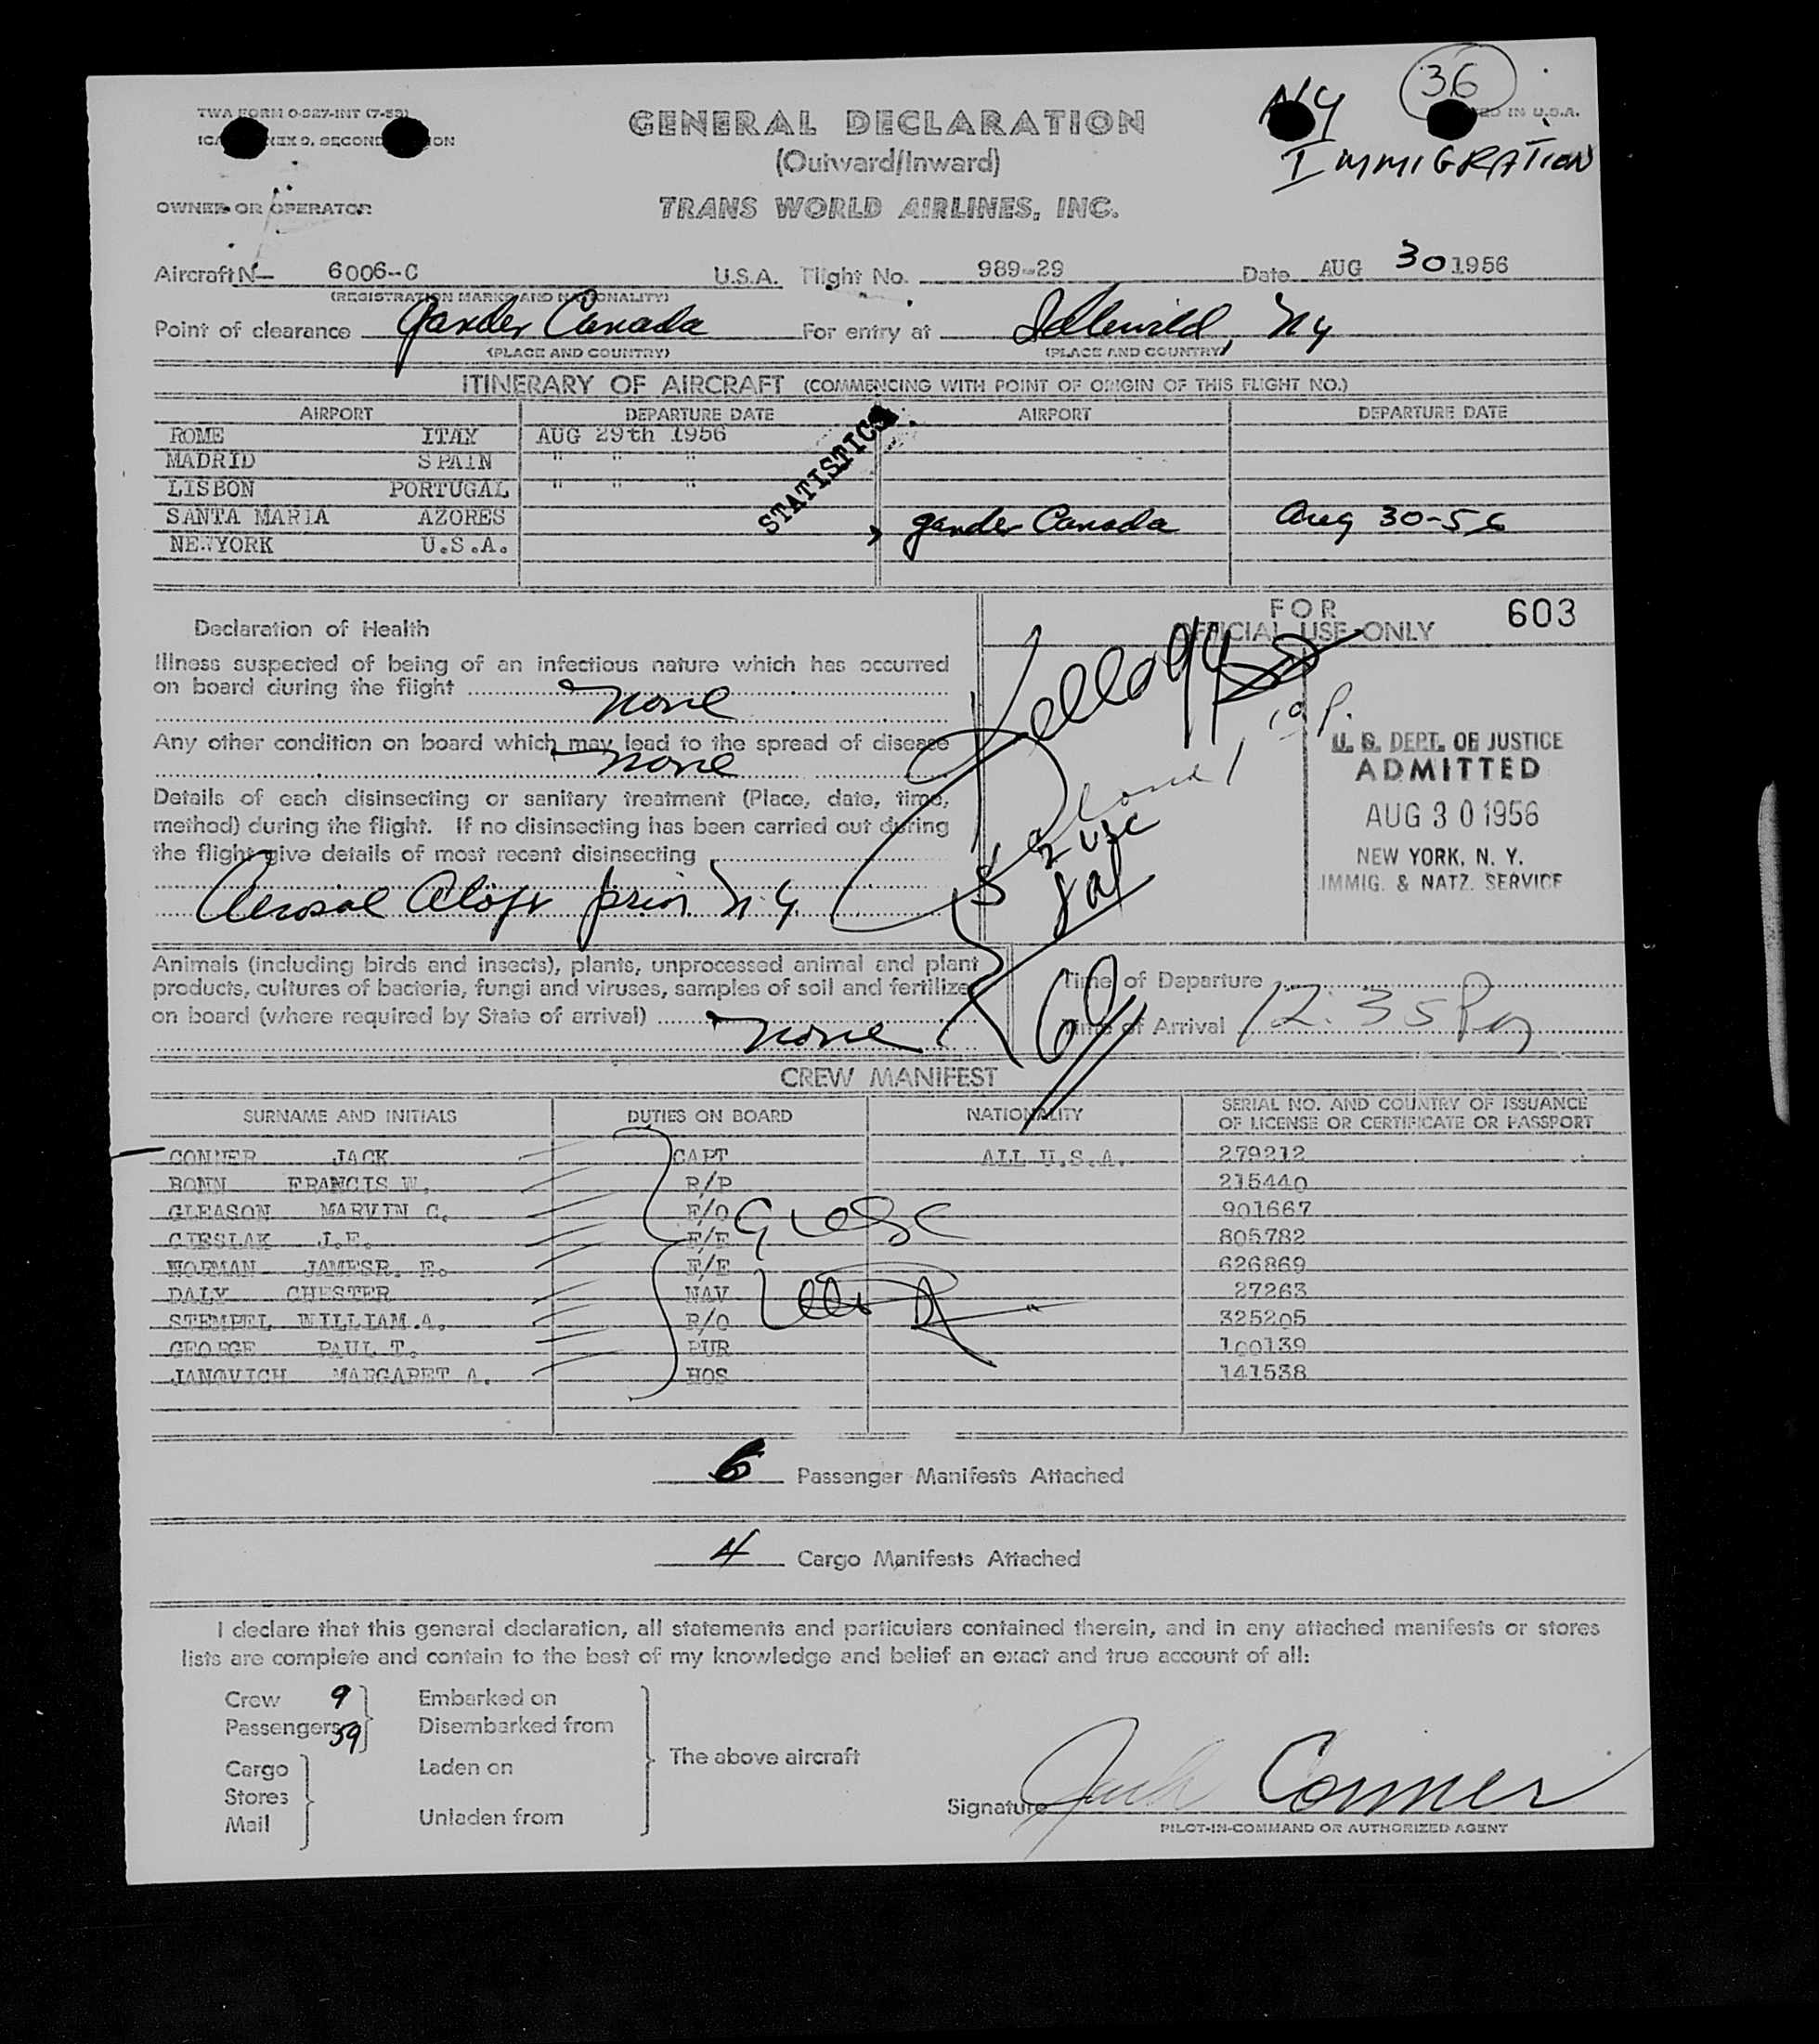 36
TWA FORM O-927-INT (7-53)
GENERAL DECLARATION
NY
IN U.S.A.
(Outward/Inward)
IMMIGRATION
OWNER OR OPERATOR
TRANS WORLD AIRLINES, INC.
Aircraft N— 6006-C U.S.A. Flight No. 989-29 Date AUG 30 1956
(REGISTRATION MARKS AND NATIONALITY)
Point of clearance Gander Canada For entry at Idlewild, NY
(PLACE AND COUNTRY) (PLACE AND COUNTRY)
ITINERARY OF AIRCRAFT (COMMENCING WITH POINT OF ORIGIN OF THIS FLIGHT NO.)
AIRPORT DEPARTURE DATE AIRPORT DEPARTURE DATE
ROME ITAY AUG 29th 1956
MADRID SPAIN " " "
LISBON PORTUGAL " " "
STATISTICS
SANTA MARIA AZORES Gander Canada Aug 30-56
NEWYORK U.S.A.
FOR
OFFICIAL USE ONLY
603
Declaration of Health
Illness suspected of being of an infectious nature which has occurred
on board during the flight none
Any other condition on board which may lead to the spread of disease
none
Details of each disinsecting or sanitary treatment (Place, date, time,
method) during the flight. If no disinsecting has been carried out during
the flight give details of most recent disinsecting
Aerosol Aloft prior NY
Kellogg
U. S. DEPT. OF JUSTICE
ADMITTED
AUG 30 1956
NEW YORK, N. Y.
IMMIG. & NATZ. SERVICE
Animals (including birds and insects), plants, unprocessed animal and plant
products, cultures of bacteria, fungi and viruses, samples of soil and fertilizer
on board (where required by State of arrival) none
Time of Departure
Time of Arrival 12:35 Pm
60
CREW MANIFEST
SURNAME AND INITIALS DUTIES ON BOARD NATIONALITY SERIAL NO. AND COUNTRY OF ISSUANCE
OF LICENSE OR CERTIFICATE OR PASSPORT
CONNER JACK CAPT ALL U.S.A. 279212
BONN FRANCIS W. R/P 215440
GLEASON MARVIN C. F/O 901667
CIESLAK J.E. F/E 805782
WORMAN JAMESR. E. F/E 626869
DALY CHESTER NAV 27263
STEMPEL WILLIAM.A. R/O 325205
GEORGE PAUL T. PUR 100139
JANOVICH MARGARET A. HOS 141538
6 Passenger Manifests Attached
4 Cargo Manifests Attached
I declare that this general declaration, all statements and particulars contained therein, and in any attached manifests or stores
lists are complete and contain to the best of my knowledge and belief an exact and true account of all:
Crew 9 Embarked on
Passengers 59 Disembarked from
The above aircraft
Cargo Laden on
Stores
Mail Unladen from
Signature Jack Conner
PILOT-IN-COMMAND OR AUTHORIZED AGENT